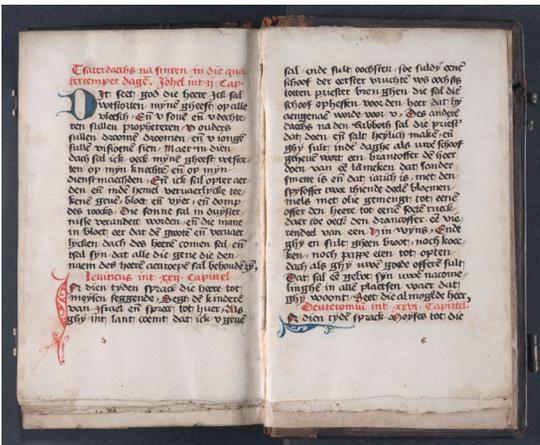 Tsaterdaechs na sinxen in die qua
tertemper dagē. Johel int ij Cap.
Dit seet god die heere Ick sal
wtstorten mynē gheest op alle
vleesch. En̄ v sonē en̄ v dochte
ren sullen propheteren v ouders
sullen droomē droomen en̄ v iongē
sullē visioenē sien. Maer in dien
dach sal ick oeck mynē gheest wtstor
ten op myn knechtē en̄ op myn
dienstmaechden. En̄ ick sal optēr aer
den en̄ indē hemel vervaerlycke tee
kenē gevē bloet en̄ vyer, en̄ domp
des roocks. Die sonne sal in duyster
nisse verandert wordē en̄ die mane
in bloet eer dat dē grootē en̄ vervaer
lycken dach des heerē comen sal en̄
tsal syn dat alle die gene die den
naem des heerē aenroept sal behoudē syn
Leviticus int xxij Capittel
In dien tyden sprack die heere tot
moysen seggende, Segt dē kinderē
van Israel en̄ spreet tot huer, Als
ghy int lant coemt dat ick v gevē
sal ende sult oochsten, soe suldy eenē
schoof der eerster vruchtē ws oochsts
totten priester brenghen die sal diē
schoof opheffen voor den heer dat hy
aengenaē wordē voor v. Des anderē
daechs na den Sabboth sal die priest
dat doen en̄ salt heylich makē en̄
ghy sult indē daghe als uwē schoof
geheuē wort een brandoffer dē heer
doen van eē lāmeken dat sonder
smette is en̄ dat iarich is, met den
spysoffer twee thiende deelē bloemen
meels met olie gemengt tot eenē
offer den heere tot eenē soetē rueck
daer toe oeck den drancoffer, eē vie
rendeel van een Hin wyns, Ende
ghy en sult gheen broot, noch koec
ken, noch pappe eten tot opten
dach als ghy uwē gode offerē sult
Dat sal eē gebot syn uwē nacome
linghē in allē plaetsen waer dat
ghy woont, Seet die almogēde heer,
Deuteromiū int xxvi Capittel.
In dien tydē sprack Moyses tot die